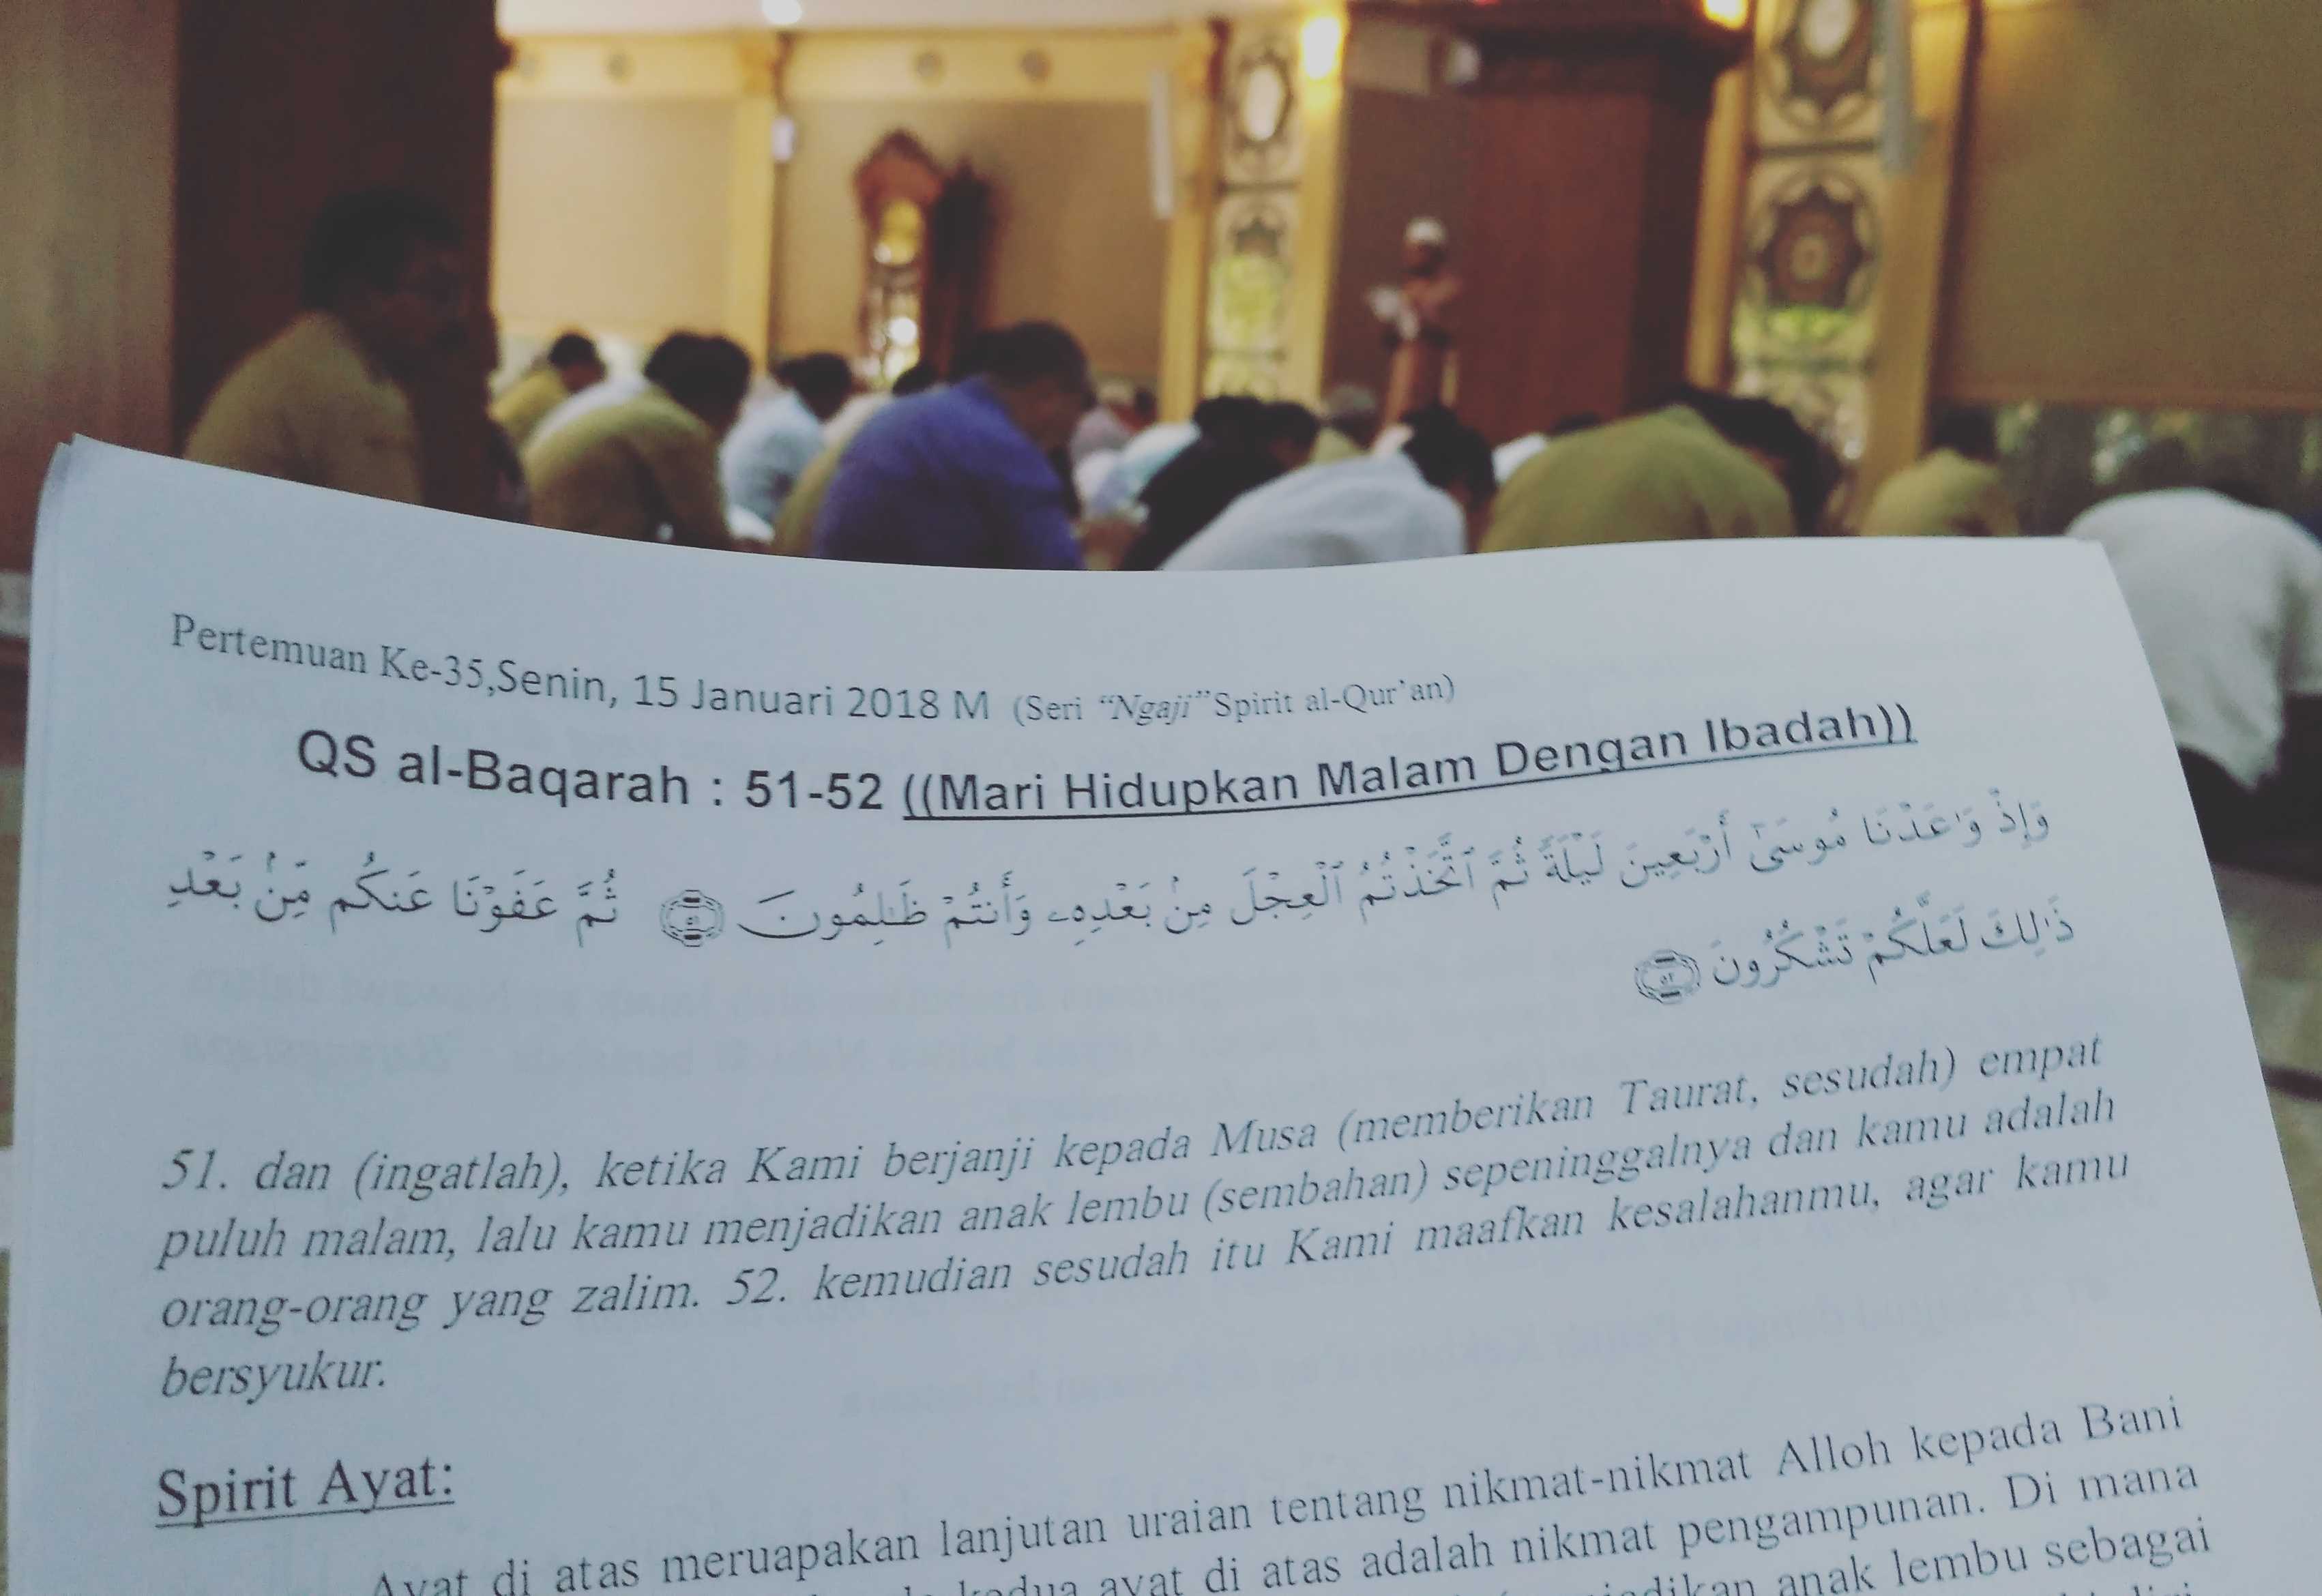 Pertemuan Ke-35,Senin, 15 Januari 2018 M (Seri “Ngaji”Spirit al-Qur’an)
QS al-Baqarah : 51-52 ((Mari Hidupkan Malam Dengan Ibadah))
وَإِذْ وَٰعَدْنَا مُوسَىٰٓ أَرْبَعِينَ لَيْلَةً ثُمَّ ٱتَّخَذْتُمُ ٱلْعِجْلَ مِنۢ بَعْدِهِۦ وَأَنتُمْ ظَٰلِمُونَ ﴿٥١﴾ ثُمَّ عَفَوْنَا عَنكُم مِّنۢ بَعْدِ
ذَٰلِكَ لَعَلَّكُمْ تَشْكُرُونَ ﴿٥٢﴾
51. dan (ingatlah), ketika Kami berjanji kepada Musa (memberikan Taurat, sesudah) empat
puluh malam, lalu kamu menjadikan anak lembu (sembahan) sepeninggalnya dan kamu adalah
orang-orang yang zalim. 52. kemudian sesudah itu Kami maafkan kesalahanmu, agar kamu
bersyukur.
Spirit Ayat:
Ayat di atas meruapakan lanjutan uraian tentang nikmat-nikmat Alloh kepada Bani
kedua ayat di atas adalah nikmat pengampunan. Di mana
anak lembu sebagai